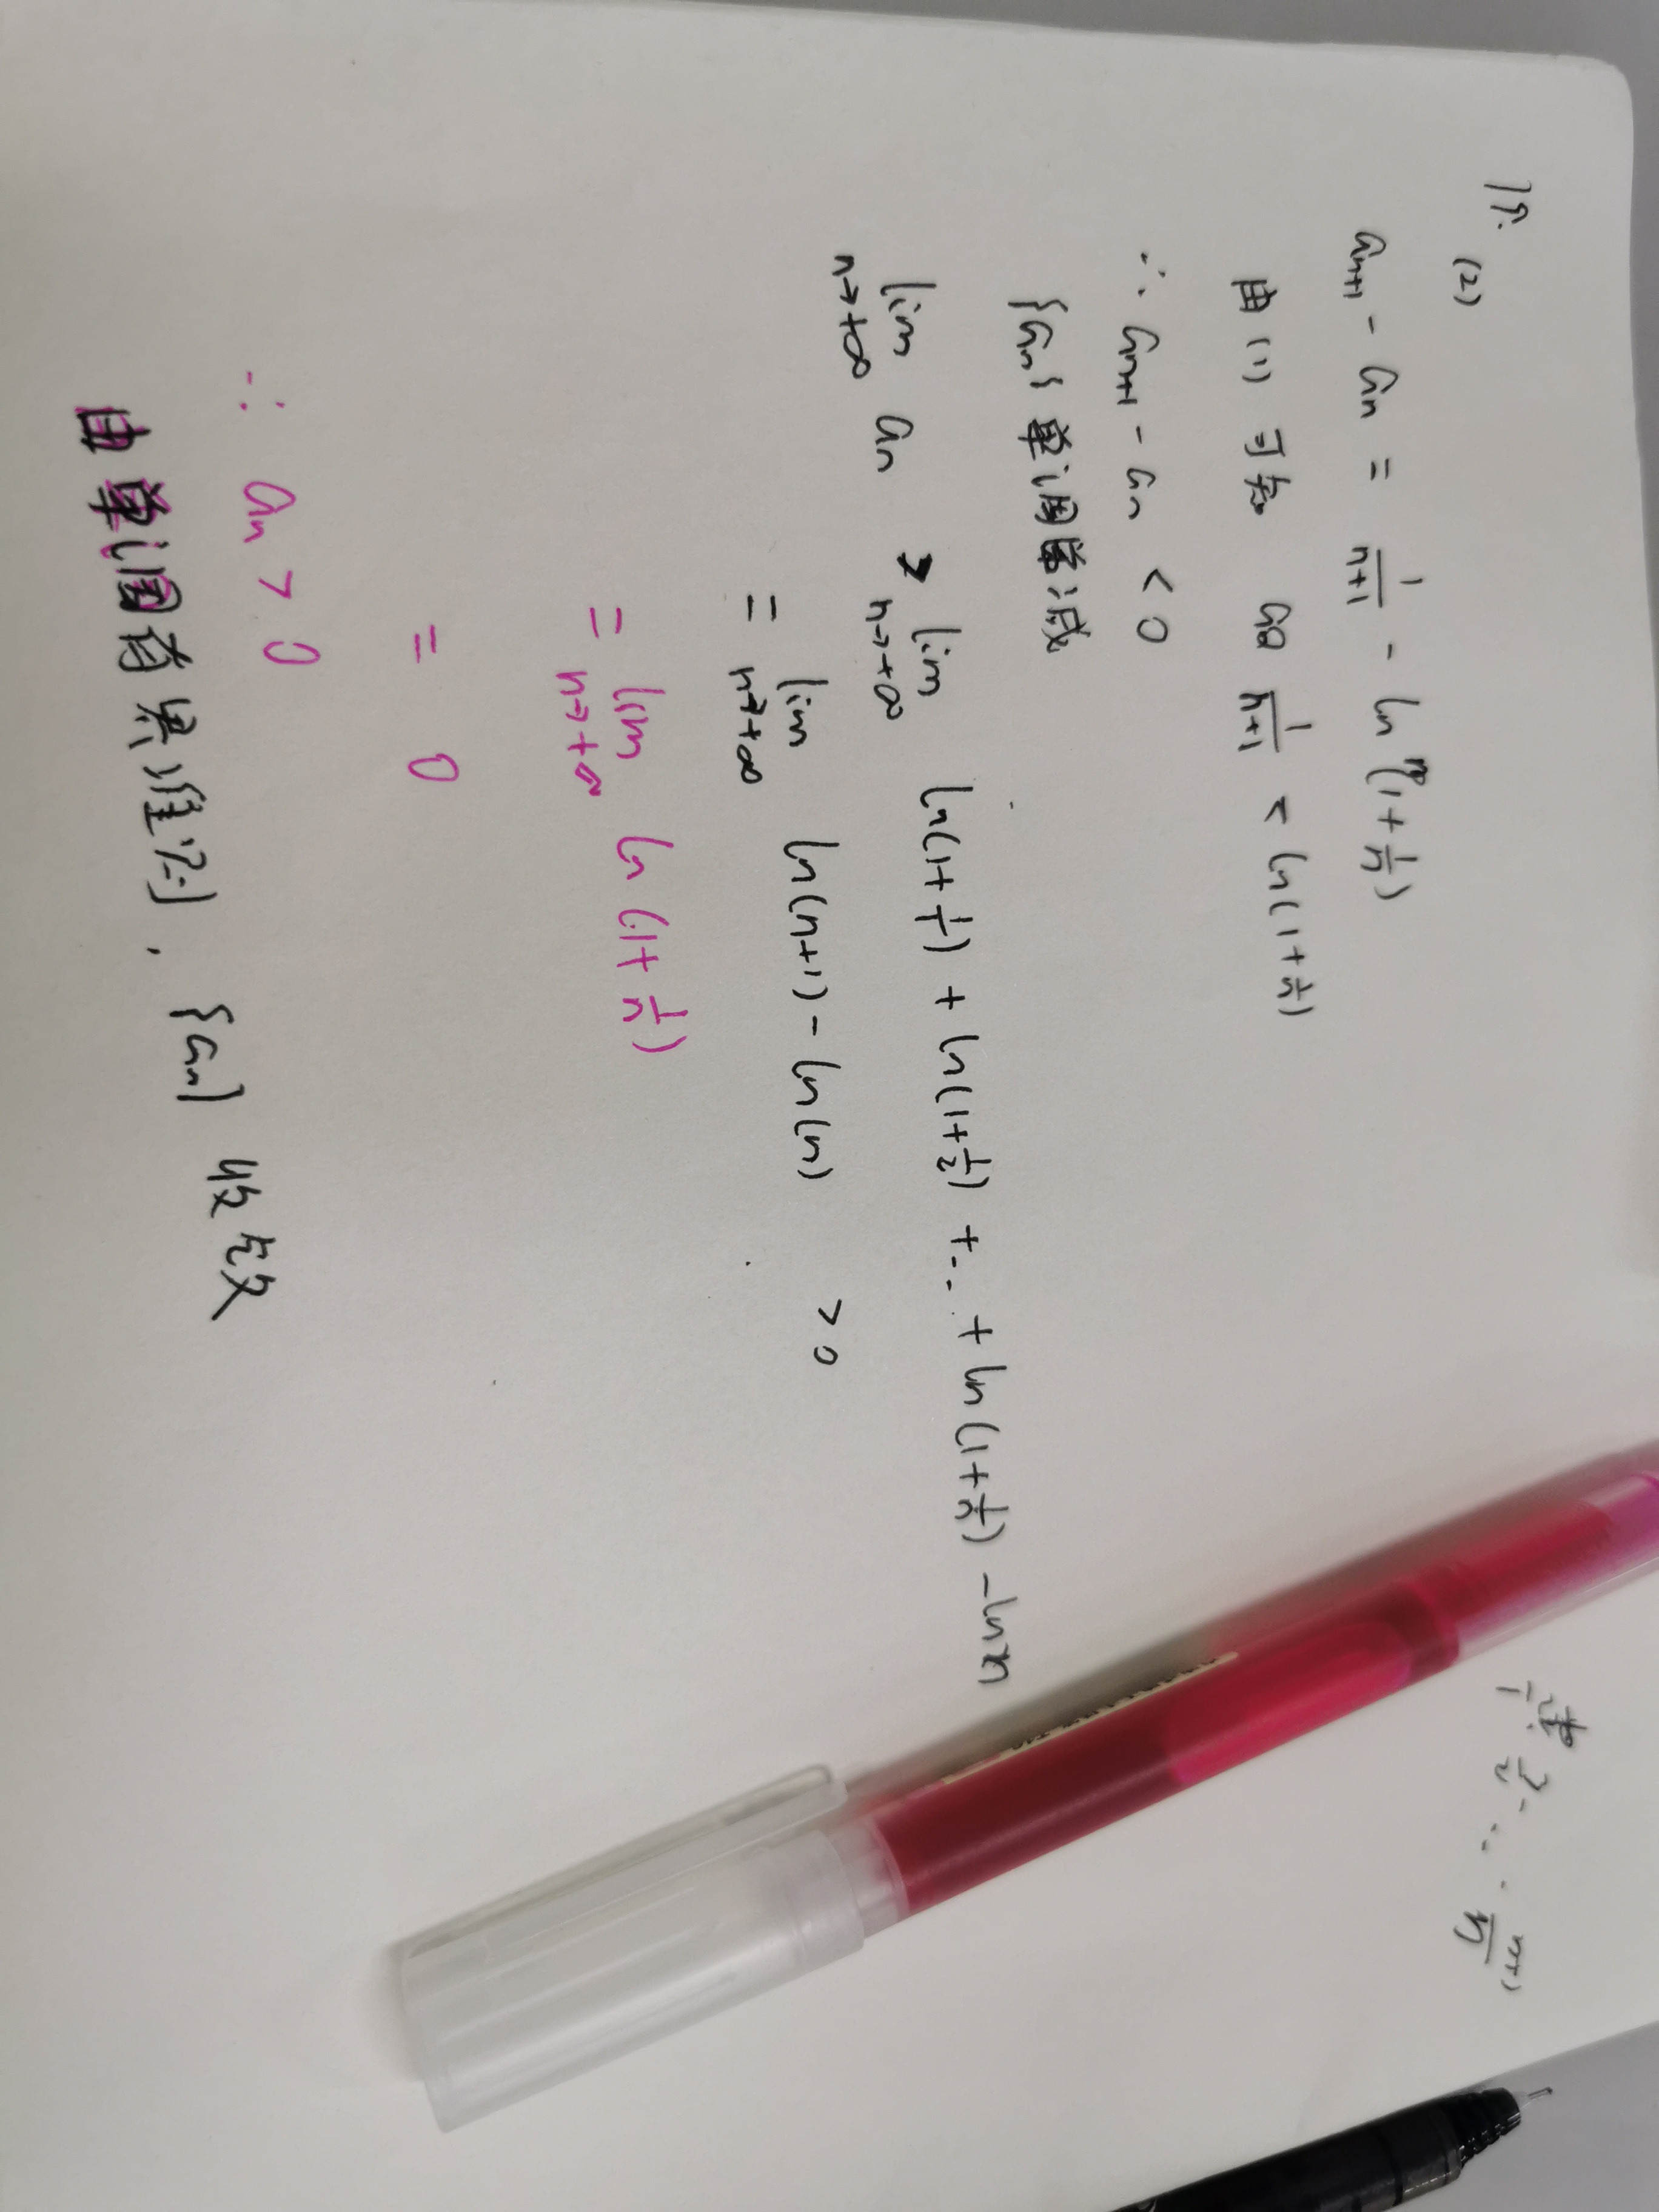 19.
(2)
aₙ₊₁ - aₙ = 1/(n+1) - ln(1+1/n)
由 (1) 可知 1/(n+1) < ln(1+1/n)
∴ aₙ₊₁ - aₙ < 0
{aₙ} 单调递减
lim n→+∞ aₙ > lim n→+∞ ln(1+1/1) + ln(1+1/2) + … + ln(1+1/n) - ln n
= lim n→+∞ ln(n+1) - ln(n) > 0
= lim n→+∞ ln(1+1/n)
= 0
∴ aₙ > 0
由单调有界准则, {aₙ} 收敛
2/1 · 3/2 ··· (n+1)/n